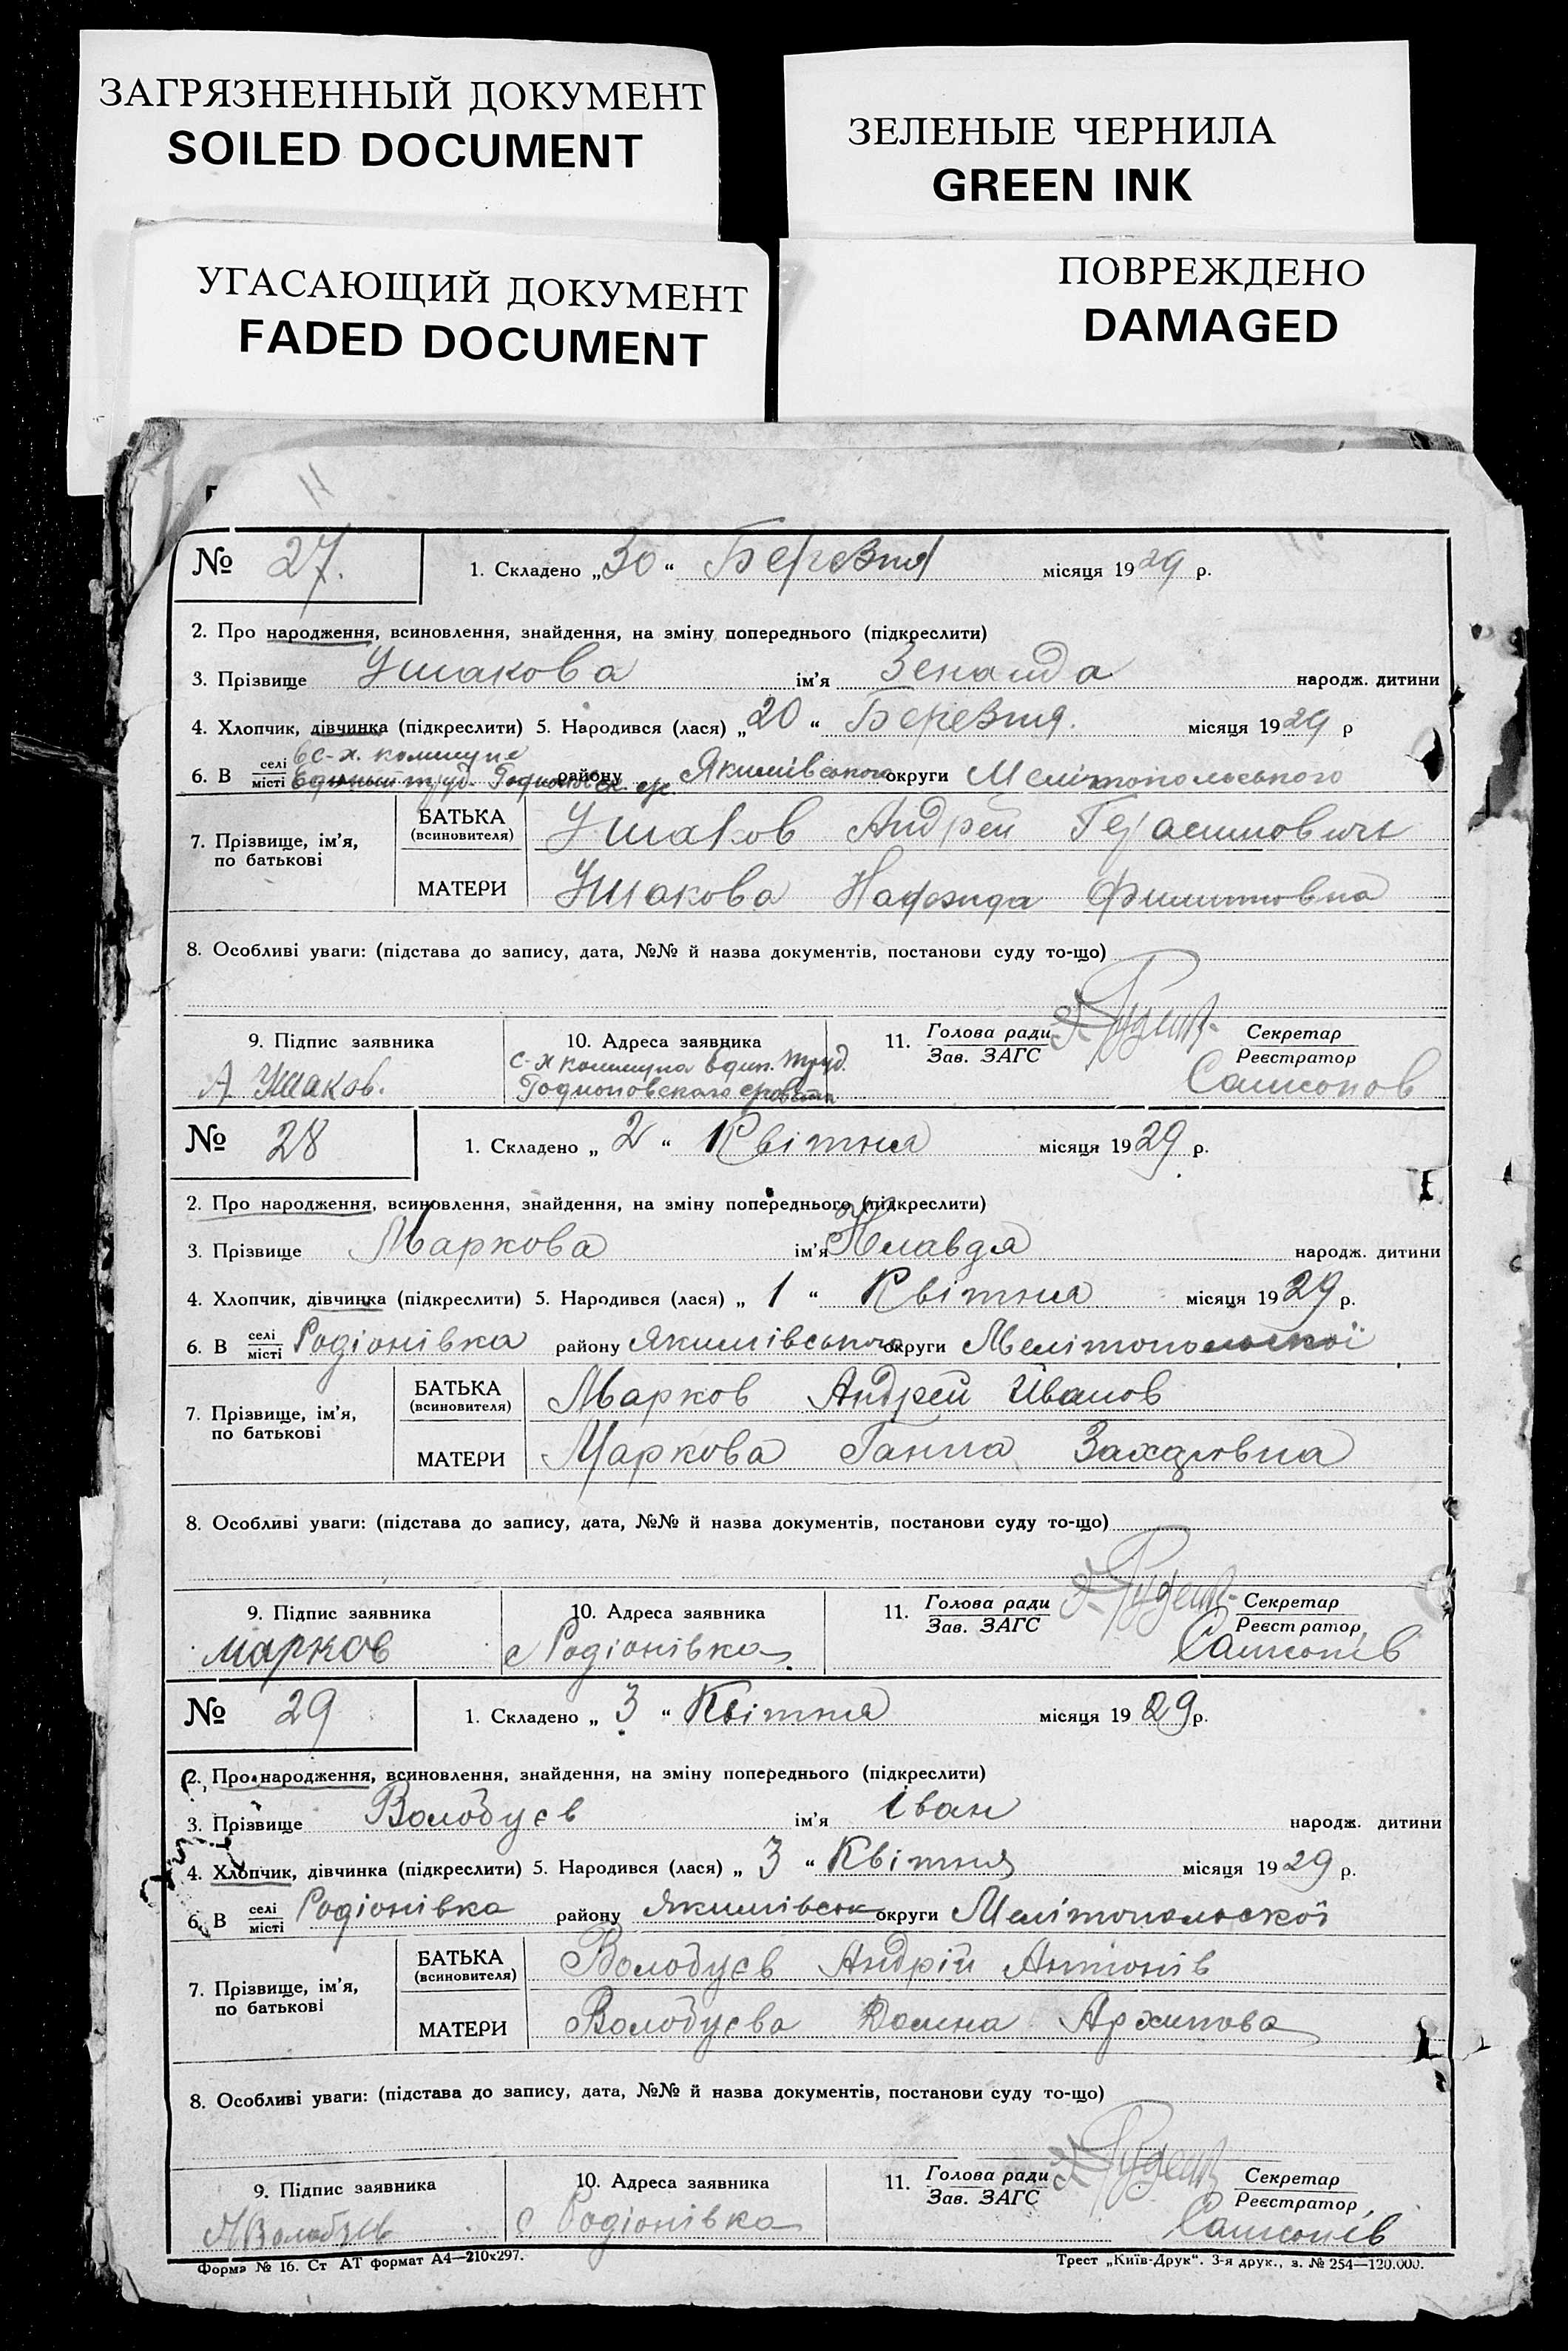 ЗАГРЯЗНЕННЫЙ ДОКУМЕНТ
SOILED DOCUMENT
ЗЕЛЕНЫЕ ЧЕРНИЛА
GREEN INK
УГАСАЮЩИЙ ДОКУМЕНТ
FADED DOCUMENT
ПОВРЕЖДЕНО
DAMAGED
11
№ 27. 1. Складено „30“ Березня місяця 1929 р.
2. Про народження, всиновлення, знайдення, на зміну попереднього (підкреслити)
3. Прізвище Ушакова ім'я Зенаида народж. дитини
4. Хлопчик, дівчинка (підкреслити) 5. Народився (лася) „20“ Березня. місяця 1929 р
с-х. коммуне
6. В селі місті району Якимівського округи Мелітопольського
7. Прізвище, ім'я, по батькові
БАТЬКА (всиновителя) Ушаков Андрей Герасимович
МАТЕРИ Ушакова
8. Особливі уваги: (підстава до запису, дата, №№ й назва документів, постанови суду то-що)
9. Підпис заявника 10. Адреса заявника 11. Голова ради Зав. ЗАГС Секретар Реєстратор
А. Ушаков. с-х коммуна Един. Труд. Родионовского Самсонов
№ 28 1. Складено „2“ Квітня місяця 1929 р.
2. Про народження, всиновлення, знайдення, на зміну попереднього (підкреслити)
3. Прізвище Маркова ім'я Клавдя народж. дитини
4. Хлопчик, дівчинка (підкреслити) 5. Народився (лася) „1“ Квітня місяця 1929 р.
6. В селі місті Родіонівка району Якимівського округи Мелітопольської
7. Прізвище, ім'я, по батькові
БАТЬКА (всиновителя) Марков Андрей Иванов
МАТЕРИ Маркова Ганна Захаровна
8. Особливі уваги: (підстава до запису, дата, №№ й назва документів, постанови суду то-що)
9. Підпис заявника 10. Адреса заявника 11. Голова ради Зав. ЗАГС Секретар Реєстратор
марков с Родіонівка. Самсонів
№ 29 1. Складено „3“ Квітня місяця 1929 р.
2. Про народження, всиновлення, знайдення, на зміну попереднього (підкреслити)
3. Прізвище Волобуєв ім'я Іван народж. дитини
4. Хлопчик, дівчинка (підкреслити) 5. Народився (лася) „3“ Квітня місяця 1929 р.
6. В селі місті Родіонівка району Якимівськ округи Мелітопольскої
7. Прізвище, ім'я, по батькові
БАТЬКА (всиновителя) Волобуєв Андрій Антонів
МАТЕРИ Волобуєва Домна Архипова
8. Особливі уваги: (підстава до запису, дата, №№ й назва документів, постанови суду то-що)
9. Підпис заявника 10. Адреса заявника 11. Голова ради Зав. ЗАГС Секретар Реєстратор
с Родіонівка Самсонів
Форма № 16. Ст АТ формат А4—210х297. Трест „Київ-Друк“. 3-я друк., з. № 254—120.000.